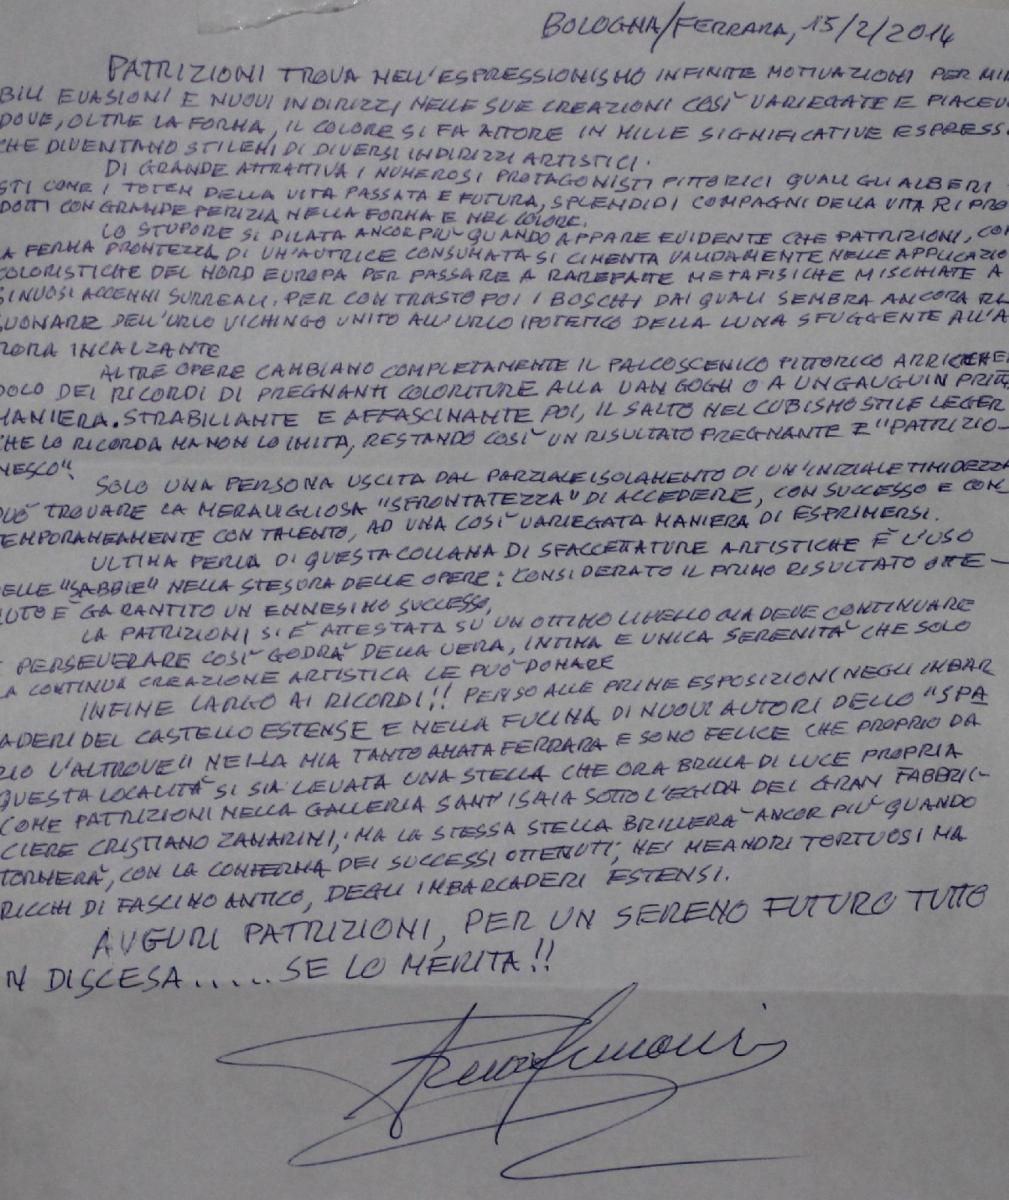 BOLOGNA/FERRARA, 15/2/2014
PATRIZIONI TROVA NELL'ESPRESSIONISMO INFINITE MOTIVAZIONI PER MIR
BILI EVASIONI E NUOVI INDIRIZZI NELLE SUE CREAZIONI COSÌ VARIEGATE E PIACEV
DOVE, OLTRE LA FORMA, IL COLORE SI FA ATTORE IN MILLE SIGNIFICATIVE ESPRESS
CHE DIVENTANO STILEMI DI DIVERSI INDIRIZZI ARTISTICI.
DI GRANDE ATTRATTIVA I NUMEROSI PROTAGONISTI PITTORICI QUALI GLI ALBERI
STI COME I TOTEM DELLA VITA PASSATA E FUTURA, SPLENDIDI COMPAGNI DELLA VITA RIPRO
DOTTI CON GRANDE PERIZIA NELLA FORMA E NEL COLORE.
LO STUPORE SI DILATA ANCOR PIÙ QUANDO APPARE EVIDENTE CHE PATRIZIONI, CON
A FERMA PRONTEZZA DI UN'AUTRICE CONSUMATA SI CIMENTA VALIDAMENTE NELLE APPLICAZIO
COLORISTICHE DEL NORD EUROPA PER PASSARE A RAREFATTE METAFISICHE MISCHIATE A
SINUOSI ACCENNI SURREALI. PER CONTRASTO POI I BOSCHI DAI QUALI SEMBRA ANCORA RI
SUONARE DELL'URLO VICHINGO UNITO ALL'URLO IPOTETICO DELLA LUNA SFUGGENTE ALL'A
RORA INCALZANTE
ALTRE OPERE CAMBIANO COMPLETAMENTE IL PALCOSCENICO PITTORICO ARRICCHEN
DOLO DEI RICORDI DI PREGNANTI COLORITURE ALLA VAN GOGH O A UN GAUGUIN PRIMA
MANIERA. STRABILIANTE E AFFASCINANTE POI, IL SALTO NEL CUBISMO STILE LEGER
CHE LO RICORDA MA NON LO IMITA, RESTANDO COSÌ UN RISULTATO PREGNANTE E "PATRIZIO-
NESCO".
SOLO UNA PERSONA USCITA DAL PARZIALE ISOLAMENTO DI UN'INIZIALE TIMIDEZZA
PUÒ TROVARE LA MERAVIGLIOSA "SFRONTATEZZA" DI ACCEDERE, CON SUCCESSO E CON
TEMPORANEAMENTE CON TALENTO, AD UNA COSÌ VARIEGATA MANIERA DI ESPRIMERSI.
ULTIMA PERLA DI QUESTA COLLANA DI SFACCETTATURE ARTISTICHE È L'USO
DELLE "SABBIE" NELLA STESURA DELLE OPERE: CONSIDERATO IL PRIMO RISULTATO OTTE-
NUTO È GARANTITO UN ENNESIMO SUCCESSO.
LA PATRIZIONI SI È ATTESTATA SU UN OTTIMO LIVELLO MA DEVE CONTINUARE
E PERSEVERARE COSÌ GODRÀ DELLA VERA, INTIMA E UNICA SERENITÀ CHE SOLO
LA CONTINUA CREAZIONE ARTISTICA LE PUÒ DONARE
INFINE LARGO AI RICORDI!! PENSO ALLE PRIME ESPOSIZIONI NEGLI IMBAR
CADERI DEL CASTELLO ESTENSE E NELLA FUCINA DI NUOVI AUTORI DELLO "SPA
ZIO L'ALTROVE" NELLA MIA TANTO AMATA FERRARA E SONO FELICE CHE PROPRIO DA
QUESTA LOCALITÀ SI SIA LEVATA UNA STELLA CHE ORA BRILLA DI LUCE PROPRIA
COME PATRIZIONI NELLA GALLERIA SANT'ISAIA SOTTO L'EGIDA DEL GRAN FABBRI-
CIERE CRISTIANO ZANARINI; MA LA STESSA STELLA BRILLERÀ ANCOR PIÙ QUANDO
TORNERÀ, CON LA CONFERMA DEI SUCCESSI OTTENUTI, NEI MEANDRI TORTUOSI MA
RICCHI DI FASCINO ANTICO, DEGLI IMBARCADERI ESTENSI.
AUGURI PATRIZIONI, PER UN SERENO FUTURO TUTTO
IN DISCESA......SE LO MERITA!!